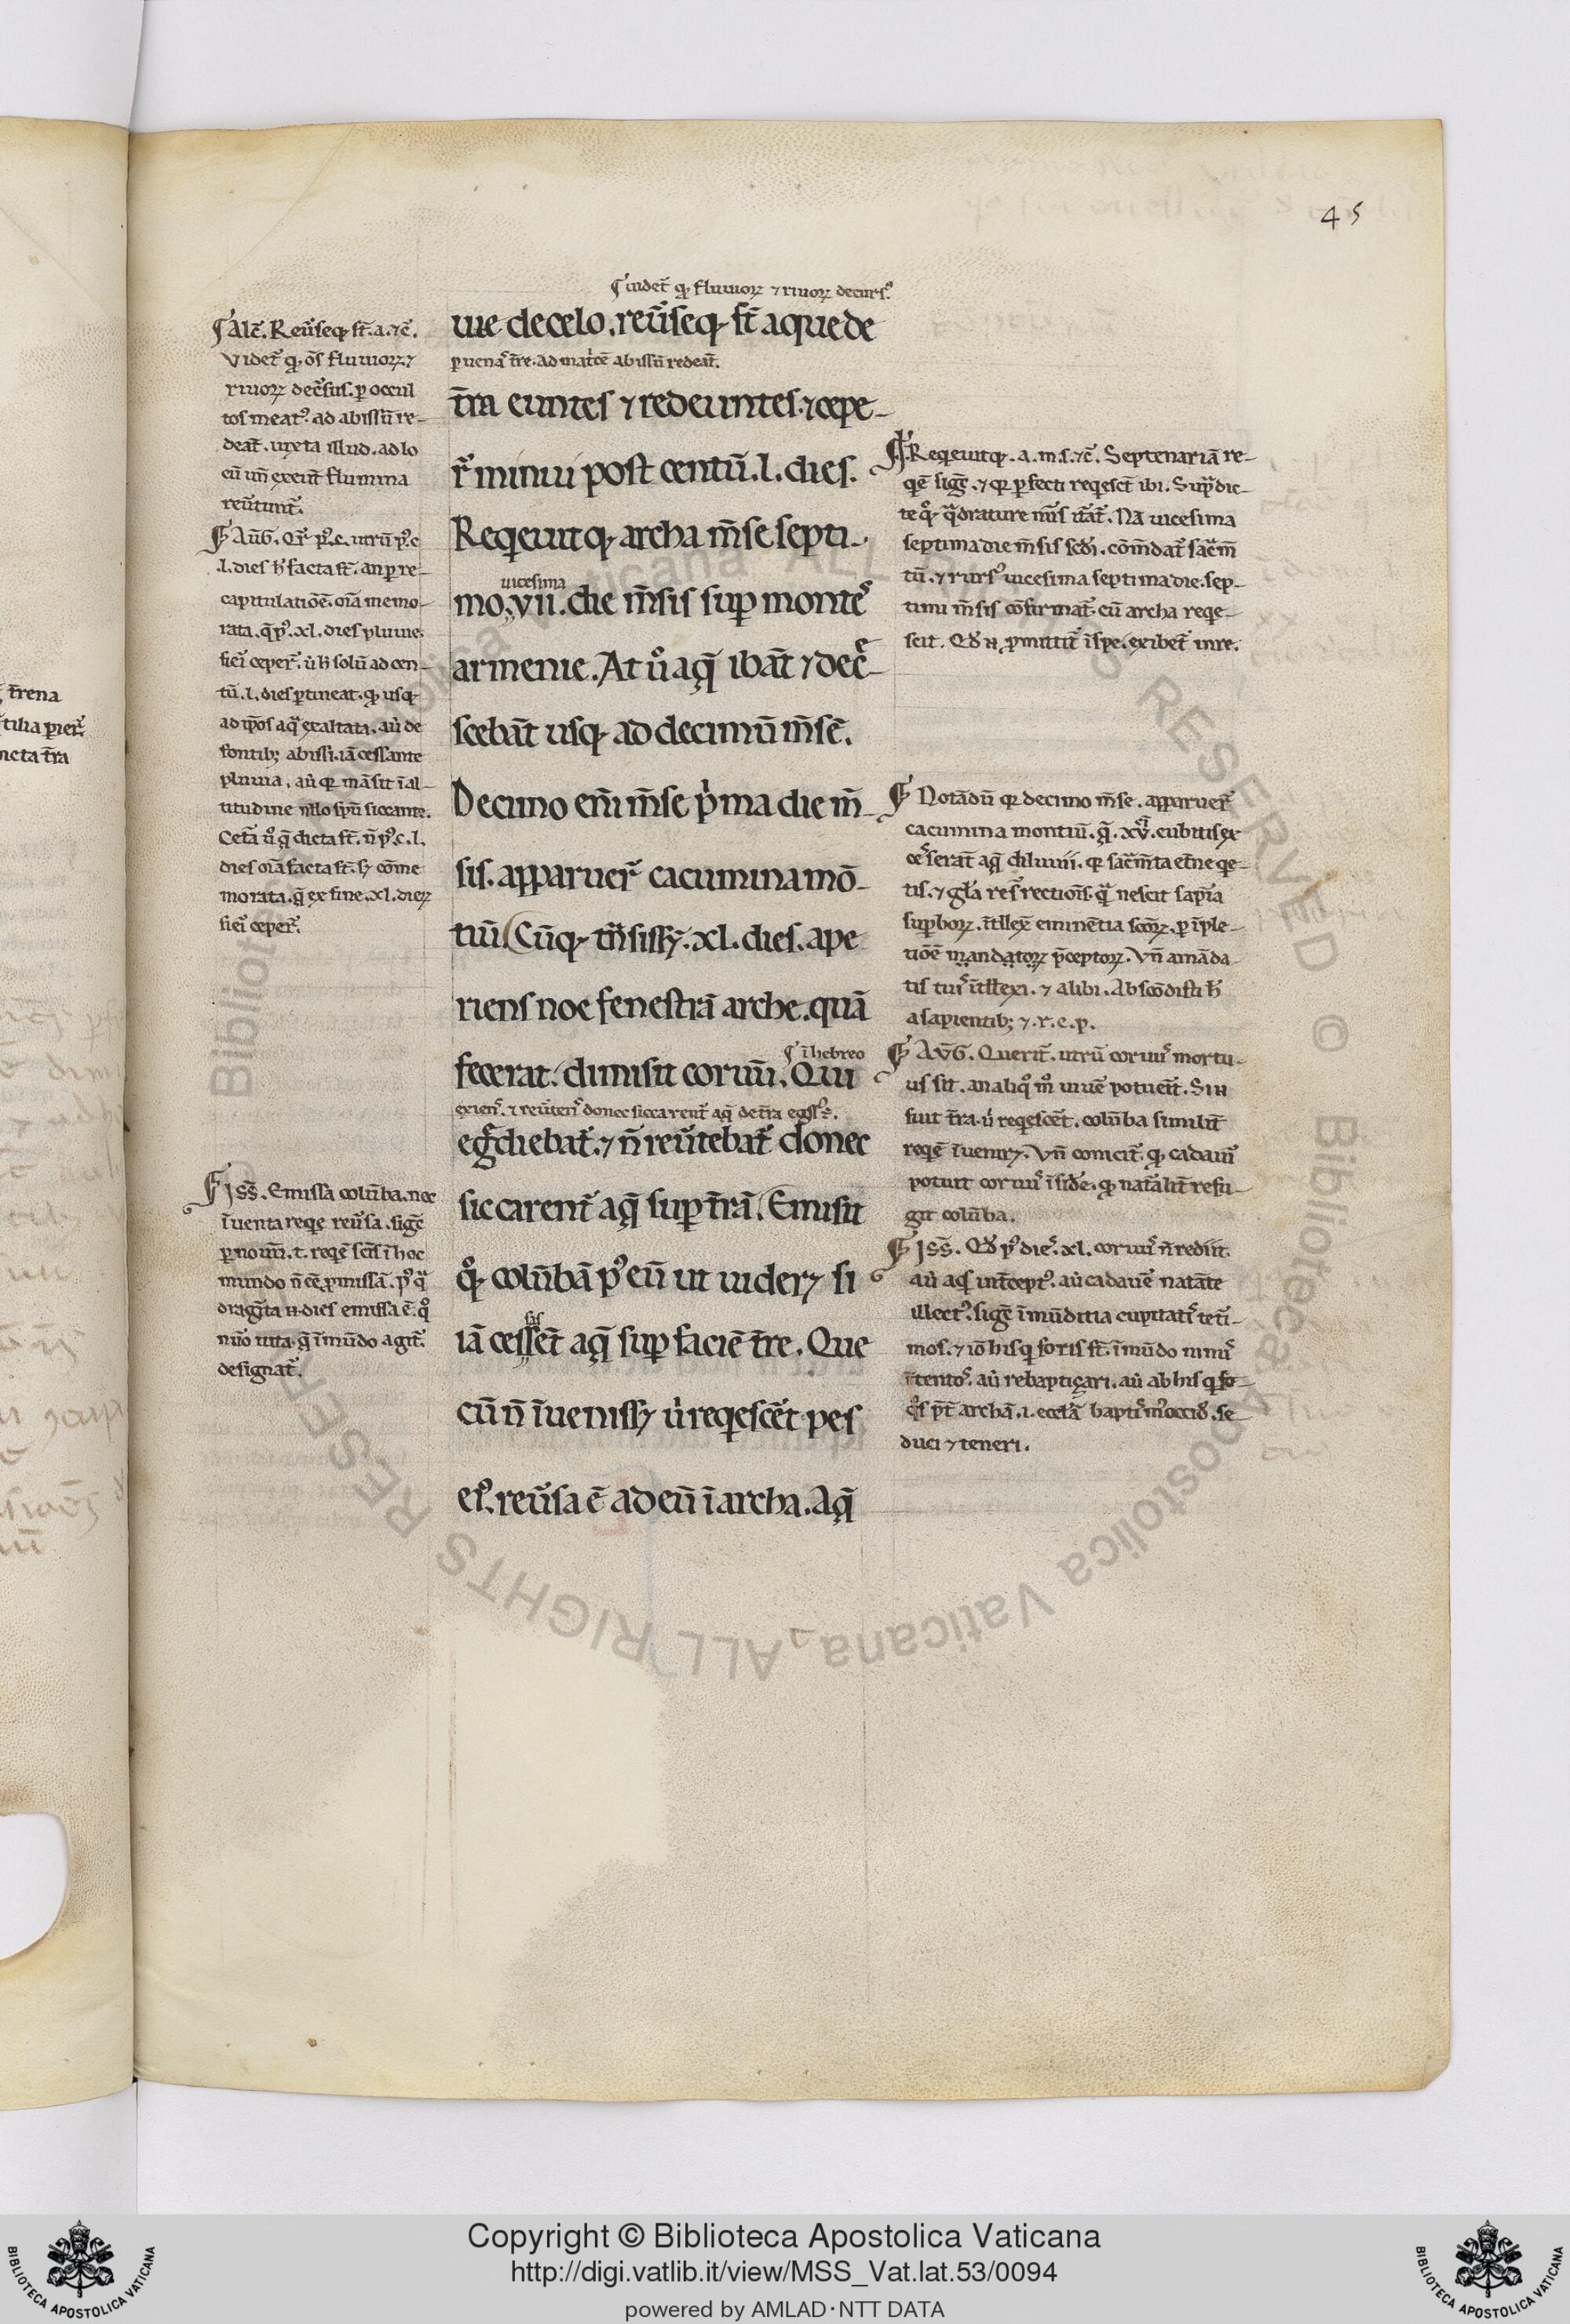 45
uidet᷑ qꝙ fluuioꝝ ⁊ riuoꝝ decursꝰ
uie de celo. reu̅seq; st̅ aque de
ꝑuenaꝝ t̅re. ad mat'ce̅ abissu̅ redeat᷑.
t̅ra euntes ⁊ redeuntes. ⁊ cepe-
rᷣ minui post centu̅. l. dies.
Reqͥeuitq; archa m̅se septi-
uicesima
mo. vii. die m̅sis suꝑ monteˢ
armenie. At uͦ aqͣ iba̅t ⁊ dec̅-
sceba̅t usq; ad decimu̅ m̅se̅.
Decimo eni̅ m̅se pͥma die m̅-
sis. apparuerᷣ cacumina mo̅-
tiu̅. Cu̅q; tn̅sissꝫ. xl. dies. ape
riens noe fenestra̅ arche. qua̅
i̅ hebreo
fecerat. dimisit coruu̅. Qui
exienˢ. ⁊ reu̅tenˢ donec siccarent᷑ aqͣ de t̅ra
egͬdiebat᷑. ⁊ n̅ reu̅tebat᷑ donec
siccarent᷑ aqͣ suꝑ t̅ra̅. Emisit
qͦꝙ colu̅ba̅ pꝰ eu̅ ut uiderꝫ si
ia̅ cesset̅ aqͣ suꝑ facie̅ t̅re. Que
cu̅ n̅ i̅uenissꝫ uͥ reqͥesce̅t pes
eiꝰ. reu̅sa e̅ ad eu̅ i̅ archa̅. Aqͣ
Alc̅. Reu̅seq; st̅. a. ⁊c̅.
Videt᷑ qꝙ. o̅s fluuioꝝ. ⁊
riuoꝝ dec̅sus. ꝑ occul
tos meatꝰ. ad abissu̅ re-
deat᷑. iuxta illud. ad lo
cu̅ un̅ exeu̅t flumina
reu̅tunt᷑.
AuG. Qrᷣ. pꝰ. c. utru̅ pꝰ. c
.l. dies h̅ facta st̅. an ꝑ re-
capitulatio̅e̅. oi̅a memo-
rata. qͣ pꝰ. xl. dies pluuie.
fieri ceperᷣ. uͥ h̅ solu̅ ad cen-
tu̅. l. dies ꝑtineat. qꝙ usq;
ad ip̅os aqͣ exaltata. auͭ de
fontibꝫ abissi. ia̅ cessante
pluuia. auͭ qꝛ ma̅sit i̅ al-
titudine nllo sp̅u siccante.
Cet̅a uͦ qͣ dicta st̅. n̅ pꝰ. c. l.
dies oi̅a facta st̅. sꝫ co̅me
morata. qͣ ex fine. xl. dieꝝ
fieri ceperᷣ.
Iss̅. Emissa colu̅ba. nec
i̅uenta reqͥe reu̅sa. sige̅
ꝑ noui̅. t. reqͥe̅ sc̅is i̅ hoc
mundo n̅ e̅e ꝓmissa̅. pꝰ qͣ
dragi̅ta n. dies emissa e̅. qͦ
nu̅o uita. qͣ i̅ mu̅do agit᷑.
designat᷑.
Reqͥeuitq;. a. m. s. ⁊c̅. Septenaria̅ re-
qͥe̅ sige̅. ⁊ qꝛ ꝑfecti reqͥesce̅t ibi. Supͣdic-
te qͦꝙ qͣdrature
septima die m̅sis sc̅di. co̅m̅dat᷑ sac̅m̅
tu̅. ⁊ rursꝰ uicesima septima die. sep-
timi m̅sis co̅firmat᷑. cu̅ archa reqͥe-
scit. Qd̅ n. ꝓmittit᷑ i̅ spe. exibet᷑ in re.
Nota̅du̅ qꝛ decimo m̅se. apparuerᷣ
cacumina montiu̅. qͣ. xv. cubitis ex
ceˢserat᷑ aqͣ diluuii. qꝛ sac̅m̅ta et̅ne qͥe-
tis. ⁊ gl̅a resˢrectio̅is. qͣ nescit sapi̅a
suꝑboꝝ. i̅tllexꝫ emine̅tia sc̅oꝝ. ꝑ i̅ple-
tio̅e̅ mandatoꝝ p̅ceptoꝝ. Vn̅ a ma̅da-
tis tuiˢ i̅tllexi. ⁊ alibi. Absco̅disti h̅
a sapientibꝫ ⁊. r. e. p.
AvG. Querit᷑. utru̅ coruuˢ mortu-
us sit. an aliqͦ mͦ uiue̅ potue̅it. Si n
fuit t̅ra. uͥ reqͥesce̅t. colu̅ba similit᷑
reqͥe̅ i̅uenirꝫ. Vn̅ conicit᷑. qꝙ cadaui᷑
potuit coruuˢ i̅side̅. qꝙ nat᷑alit᷑ refu-
git colu̅ba.
Iss̅. Qd̅ pꝰ dieˢ. xl. coruuˢ n̅ rediit.
auͭ aqͥs int̅ceptꝰ. auͭ cadaue̅ nata̅te
illectꝰ. sige̅ i̅mu̅ditia cupitatiˢ tet̅i-
mos. ⁊ io̅ hisqͥ foris st̅. i̅ mu̅do nimiˢ
i̅tentoˢ. auͭ rebaptiçari. auͭ ab his qͥ fo-
p̅t᷑ archa̅. .i. eccl̅a̅ baptiˢmꝰ occid̅. se-
duci ⁊ teneri.
t̅rena
tilia
ncta t̅ra
Copyright © Biblioteca Apostolica Vaticana
http://digi.vatlib.it/view/MSS_Vat.lat.53/0094
powered by AMLAD · NTT DATA
BIBLIOTECA APOSTOLICA VATICANA
BIBLIOTECA APOSTOLICA VATICANA
© Biblioteca Apostolica Vaticana ALL RIGHTS RESERVED © Biblioteca Apostolica Vaticana ALL RIGHTS RESER